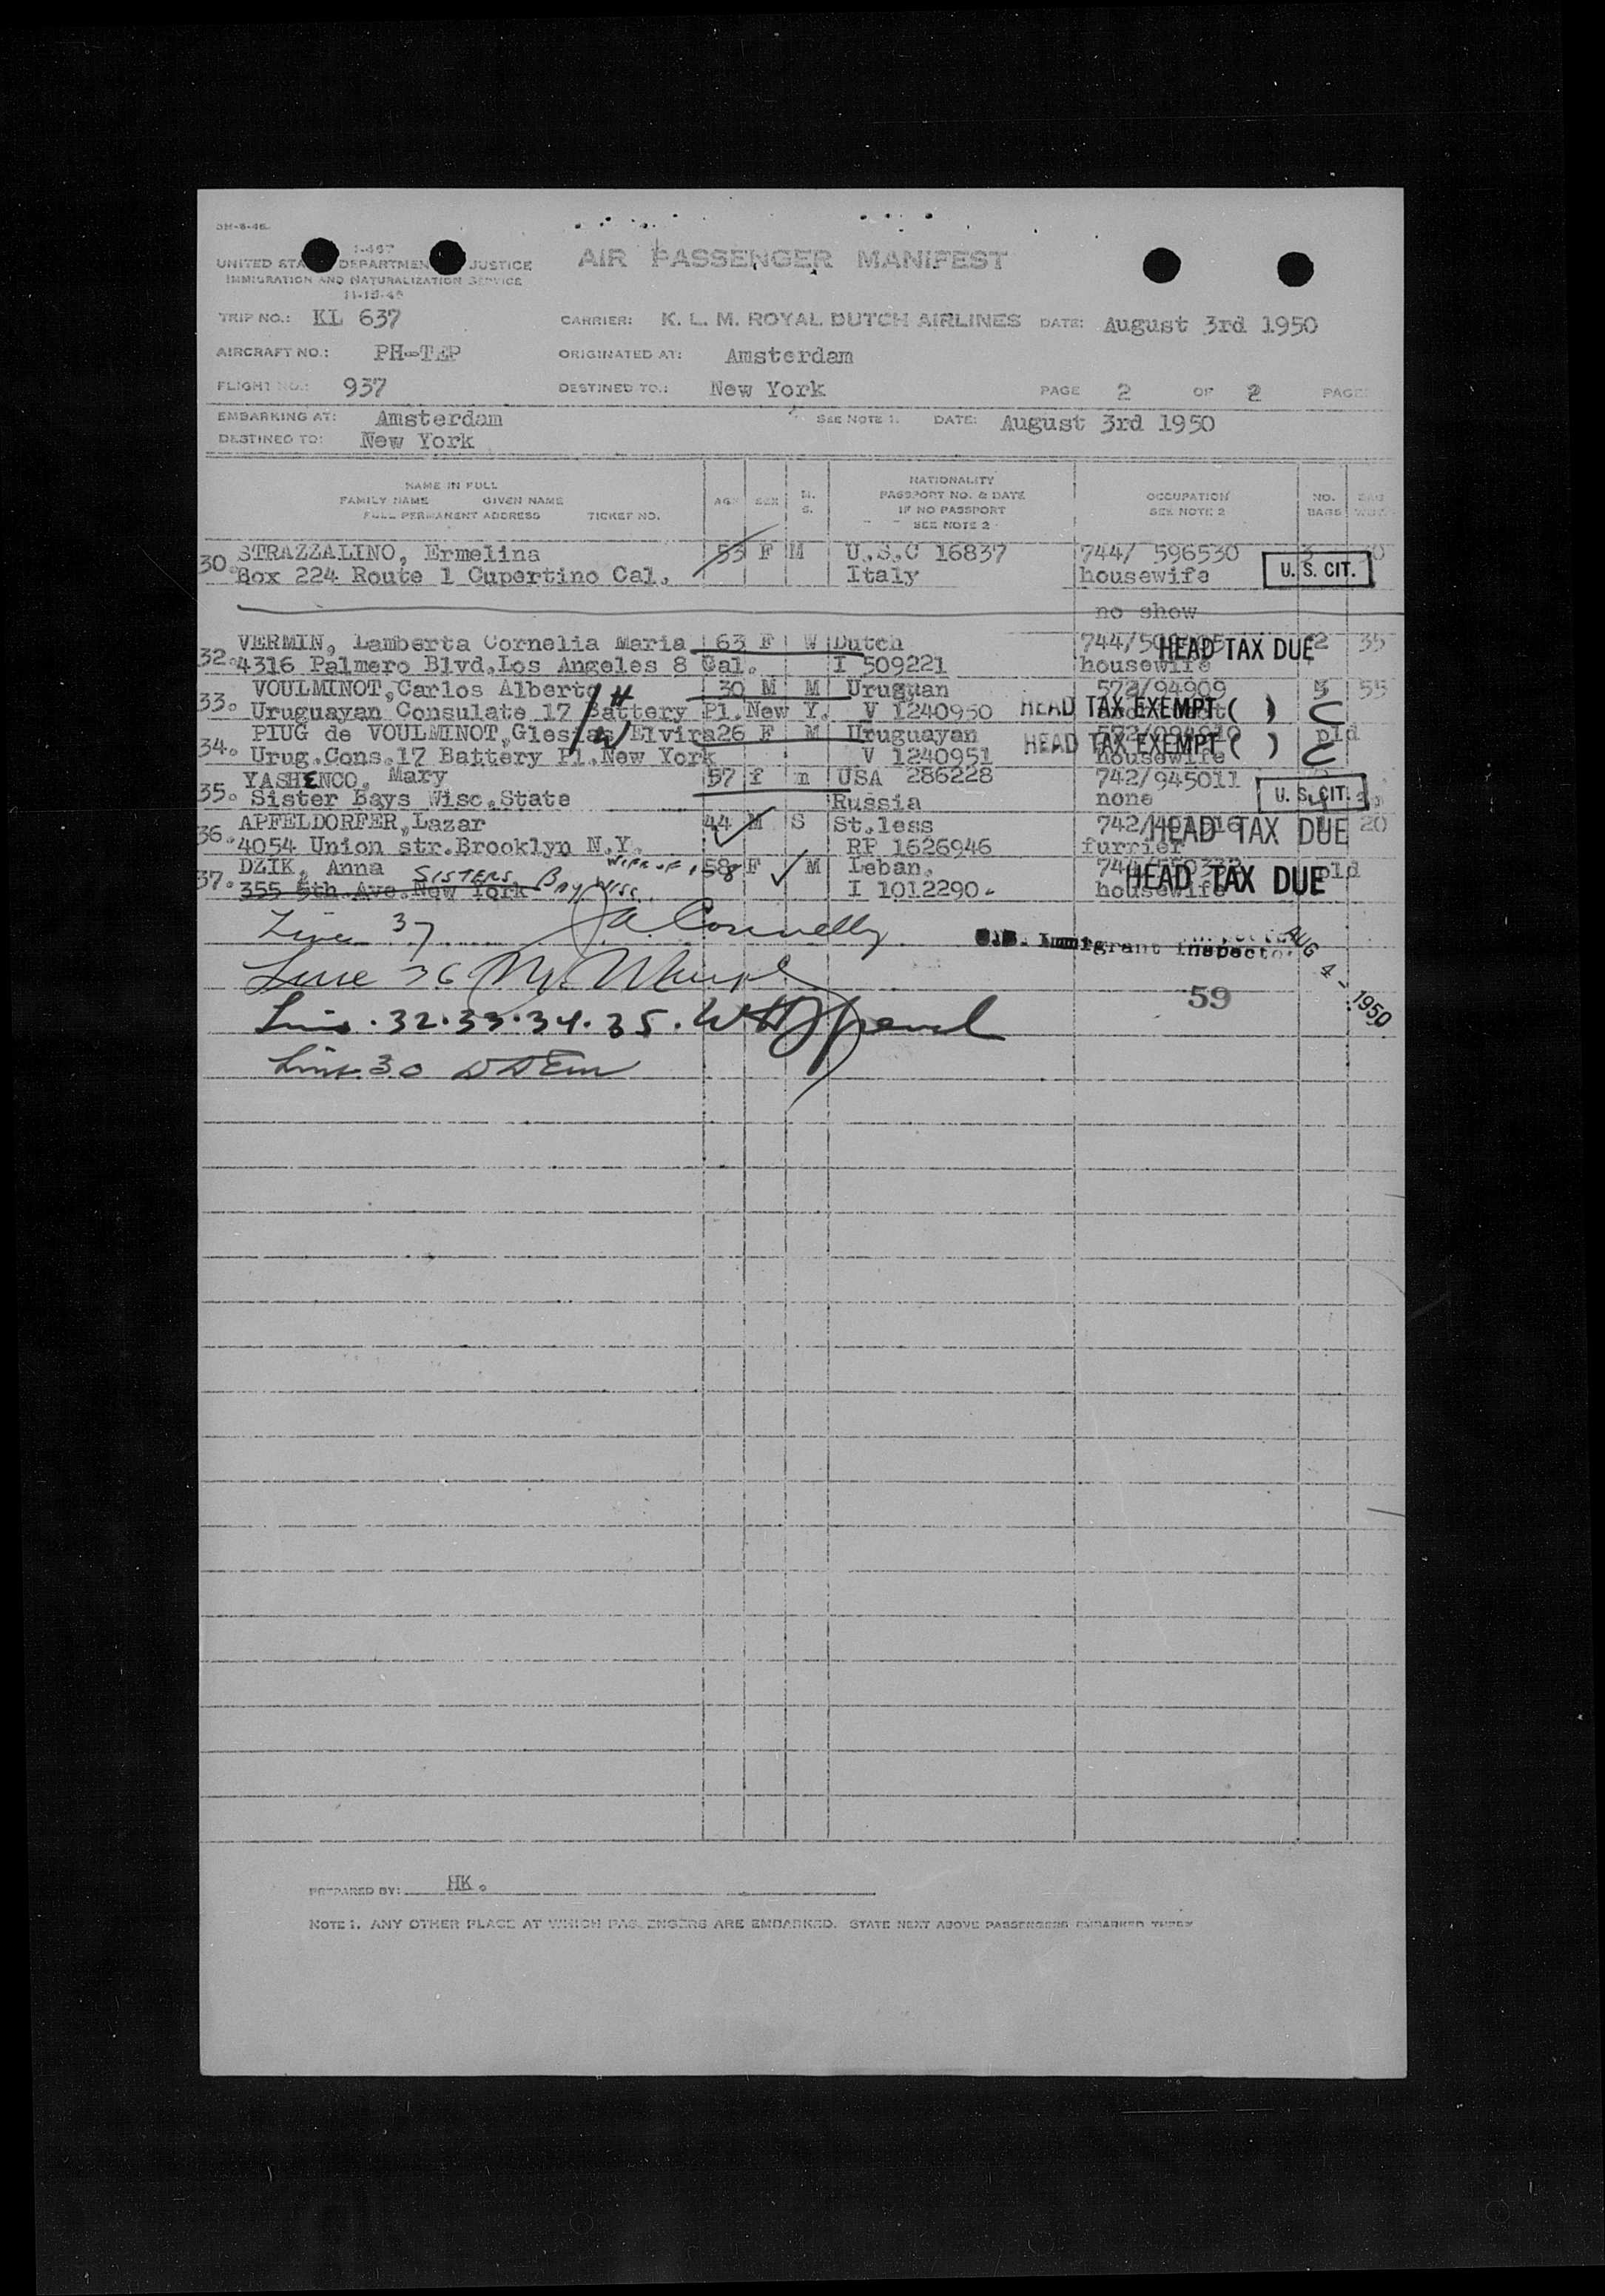 I-467
UNITED STA DEPARTMEN JUSTICE
IMMIGRATION AND NATURALIZATION SERVICE
AIR PASSENGER MANIFEST
TRIP NO.: KL 637 CARRIER: K. L. M. ROYAL DUTCH AIRLINES DATE: August 3rd 1950
AIRCRAFT NO.: PH-TEP ORIGINATED AT: Amsterdam
FLIGHT NO.: 937 DESTINED TO.: New York PAGE 2 OF 2 PAGE
EMBARKING AT: Amsterdam SEE NOTE 1. DATE: August 3rd 1950
DESTINED TO: New York
NAME IN FULL
FAMILY NAME GIVEN NAME
FULL PERMANENT ADDRESS TICKET NO.
AGE SEX M. S.
NATIONALITY
PASSPORT NO. & DATE
IF NO PASSPORT
SEE NOTE 2
OCCUPATION
SEE NOTE 2
NO. BAGS
30. STRAZZALINO, Ermelina 53 F M U.S.C 16837 744/ 596530 3
Box 224 Route 1 Cupertino Cal. Italy housewife U. S. CIT.
no show
32. VERMIN, Lamberta Cornelia Maria 63 F W Dutch HEAD TAX DUE 2 35
4316 Palmero Blvd.Los Angeles 8 Cal. I 509221 housewife
33. VOULMINOT,Carlos Alberto H 30 M M Uruguan 572/94909 3 55
Uruguayan Consulate 17 Battery Pl.New Y. V 1240950 HEAD TAX EXEMPT ( )
34. PIUG de VOULMINOT,Glesias Elvira W 26 F M Uruguayan pld
Urug.Cons.17 Battery Pl.New York V 1240951 housewife HEAD TAX EXEMPT ( )
35. YASHENCO, Mary 57 f m USA 286228 742/945011
Sister Bays Wisc.State Russia none U. S. CIT.
36. APFELDORFER,Lazar 44 M S St.less HEAD TAX DUE 20
4054 Union str.Brooklyn N.Y. RP 1626946 furrier
37. DZIK, Anna SISTERS BAY WISC. WIFE OF 58 F M Leban. pld
355 5th Ave.New York I 1012290 housewife HEAD TAX DUE
Line 37 JA Connelly U.S. Immigrant Inspector
AUG 4 - 1950
Line 36 M.
59
Lines 32.33.34.35.
Line 30
PREPARED BY: HK.
NOTE 1. ANY OTHER PLACE AT WHICH PASSENGERS ARE EMBARKED. STATE NEXT ABOVE PASSENGERS EMBARKED THERE